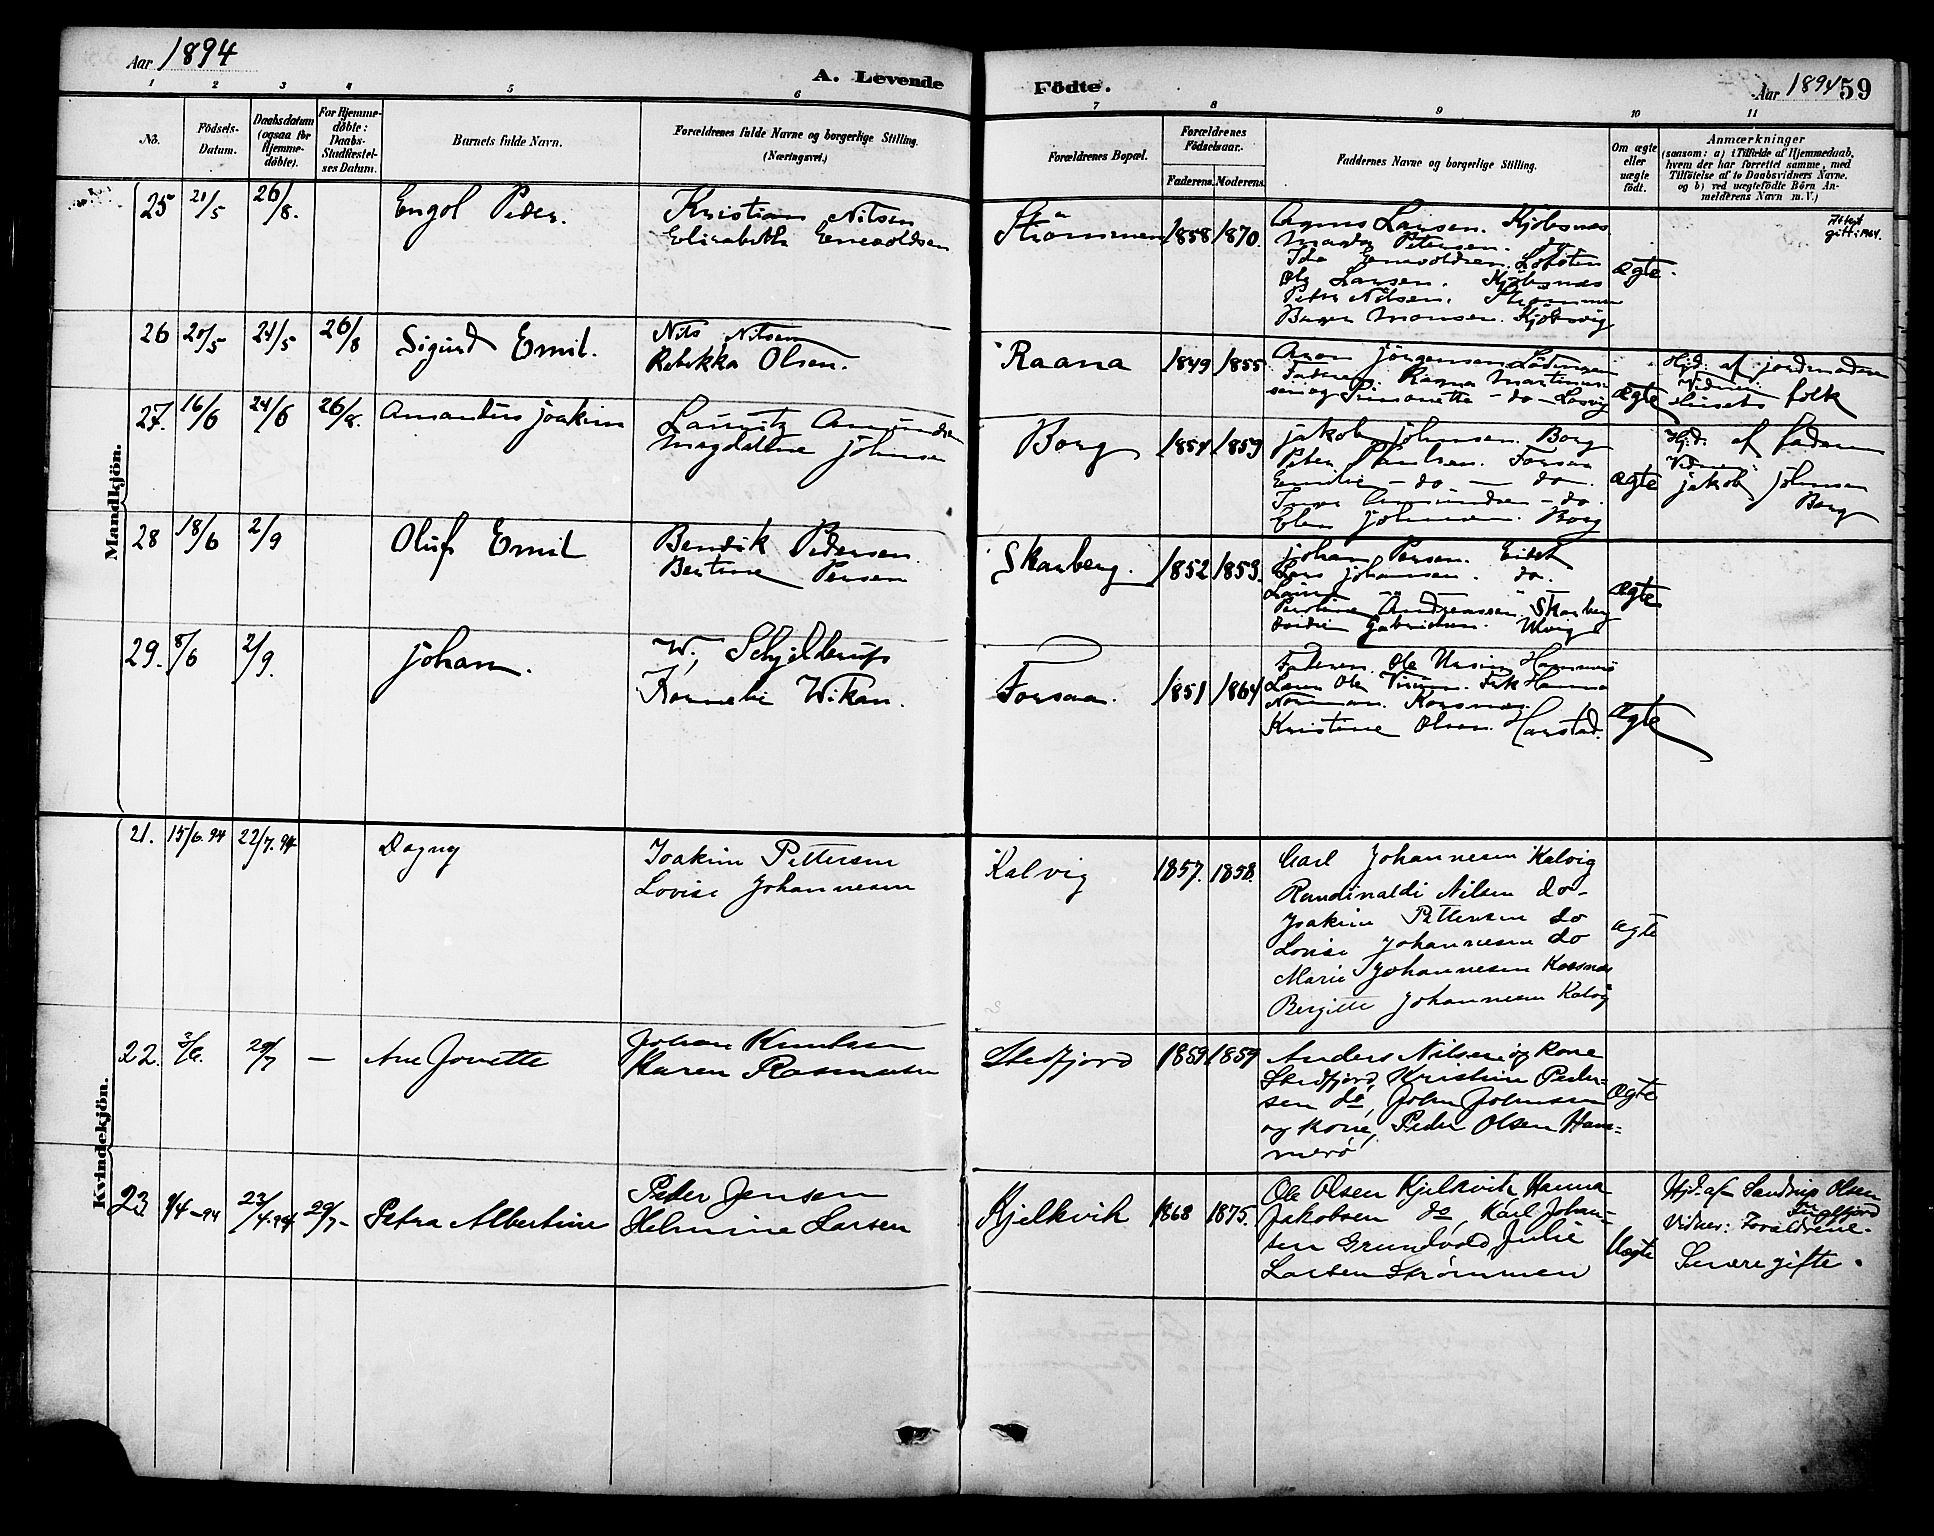 Aar 1894
A. Levende
Födte.
Aar 1894 59
1 2 3 4 5 6 7 8 9 10 11
No.
Födsels-
Datum.
Daabsdatum
(ogsaa for
Hjemme-
döbte).
For Hjemme-
døbte:
Daabs-
Stadfæstel-
ses Datum.
Barnets fulde Navn.
Forældrenes fulde Navne og borgerlige Stilling.
(Næringsvei.)
Forældrenes Bopæl.
Forældrenes
Födselsaar.
Faderens. Moderens.
Faddernes Navne og borgerlige Stilling.
Om ægte
eller
uægte
født.
Anmærkninger
(saasom: a) i Tilfælde af Hjemmedaab,
hvem der har forrettet samme, med
Tilföielse af to Daabsvidners Navne.
og b) ved uægtefödte Börn An-
melderens Navn m. V.)
Mandkjön.
25 21/5 26/8. Engol Peder.
Kristian Nilsen
Elisabeth Enevoldsen
Strömmen 1858 1870.
Larsen. Kjöbsnæs
Magda Petersen. do
Ida Enevoldsen. Lofoten
Larsen. Kjöbsnæs
Peter Nilsen. Strömmen
Monsen. Kjöbsvig
ægte.
26 20/5 24/5 26/8 Sigurd Emil.
Nils Nilsen
Rebekka Olsen.
Raana 1849 1855
Aron Jörgensen Lödingen
Martinus-
sen og Simonette - do -
ægte
Hjd. af jordmoderen
Vidner:
Husets folk
27. 16/6 24/6 26/8. Amandus Joakim
Lauritz Amundsen
Magdalene Johnsen
Borg 1854 1859
Jakob Johnsen. Borg
Peter Paulsen. Forsaa
Emilie - do - do.
Amundsen - do.
Elen Johnsen. Borg
ægte
Hjd. af faderen
Vidner:
Jakob Johnsen
Borg
28 18/6 2/9 Oluf Emil
Bendik Pedersen
Bertine Persen
Skarberg. 1852 1853.
Johan Persen. Eidet
Lars Johansen. do.
Andreassen Skarberg
Gabrielsen. Ulvig
ægte
29. 8/6 2/9. Johan.
W. Schjelderup
Kornelie Wikan.
Forsaa. 1851 1864
Faderen. Ole Hammerö
Korsnæs.
Kristine Olsen. Harstad.
ægte
Kvindekjön.
21. 15/6.94 22/7.94 Dagny
Joakim Pettersen
Lovise Johannesen
Kalvig 1857. 1858.
Carl Johannesen Kalvig
Randinaldi Nilsen do-
Joakim Pettersen do
Lovise Johannesen do
Marie Johannesen Korsnæs
Bergitte Johannesen Kalvig
ægte
22. 3/6. 29/7 — Ane Jonette
Johan Knutsen
Karen Rasmussen
Stedfjord 1859 1859
Anders Nilsen og kone
Stedfjord, Kristine Peder-
sen do, John Johnsen
og kone, Peder Olsen Ham-
merö
ægte
23 1/4-94 23/4.94 29/7- Petra Albertine
Peder Jensen
Helmine Larsen
Kjelkvik 1868 1875.
Ole Olsen Kjelkvik, Hanna
Jakobsen do, Karl Johan-
sen Grundvold, Julie
Larsen Strømmen
Uægte
Hjd. af Olsen
Vidner: Forældrene.
Senere gifte.